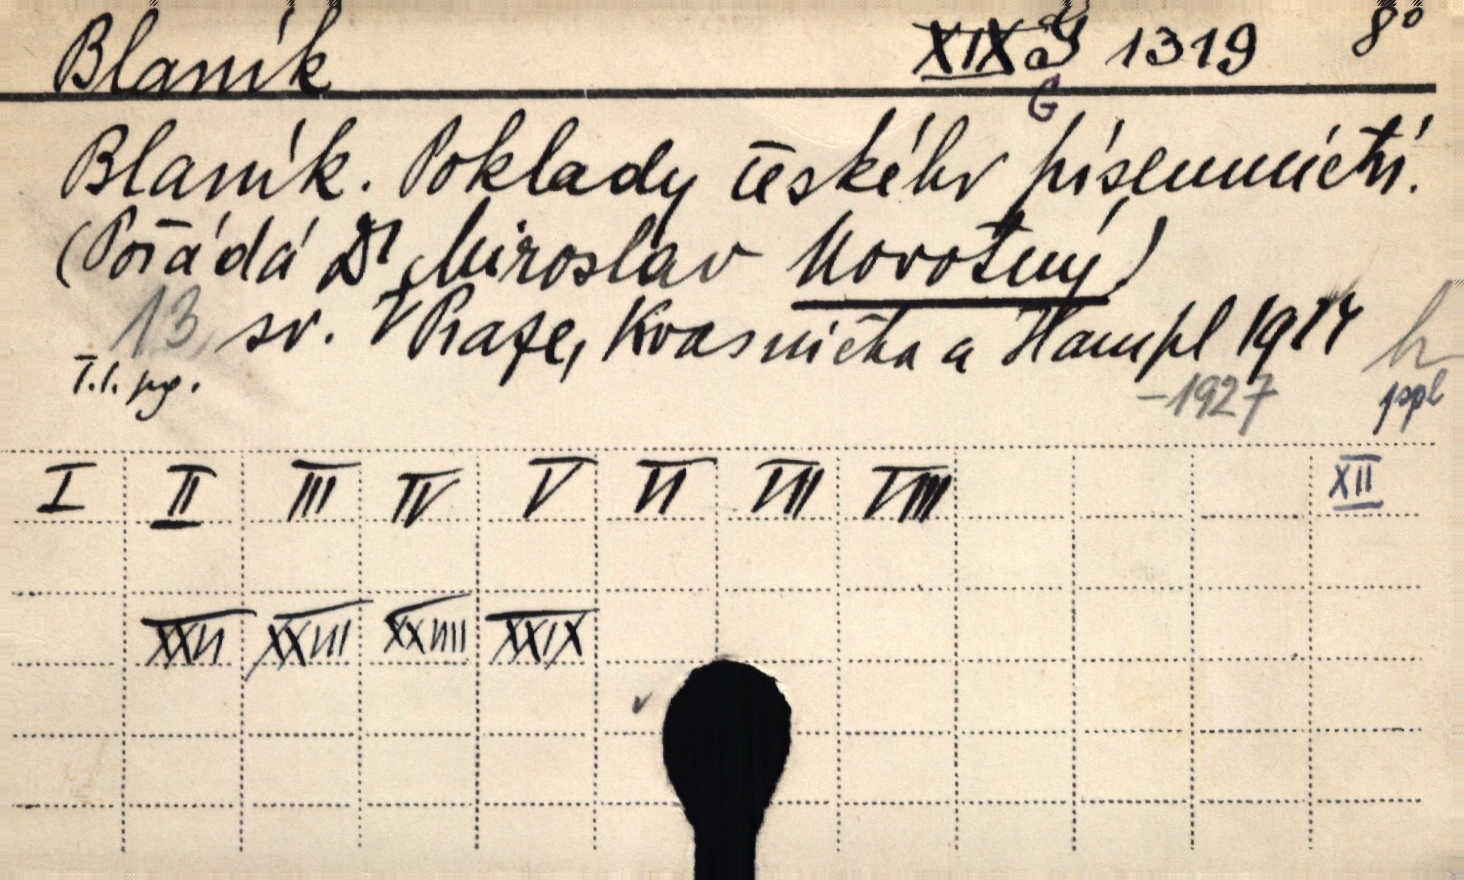 Blaník XIX G 1319 8°
Blaník. Poklady českého písemnictví.
(Pořádá Dr Miroslav Novotný)
13 sv. V Praze, Kvasnička a Hampl 1924
-1927
I II III IV V VI VII VIII XII
XXVI XXVII XXVIII XXIX